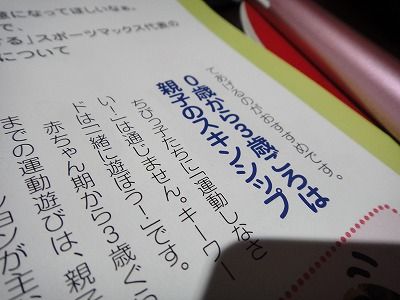 意になってほしいなぁ。
で、
する」スポーツマックス代表の
について
てあげるのがおすすめです。
0歳から3歳ごろは
親子のスキンシップ
ちびっ子たちに「運動しなさ
い！」は通じません。キーワー
ドは「一緒に遊ぼう！」です。
赤ちゃん期から3歳ぐら
までの運動遊びは、親子
ションが主